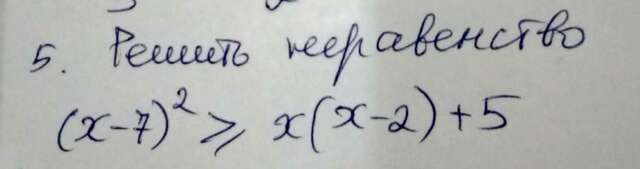 5. Решить неравенство
(x-7)² ⩾ x(x-2)+5